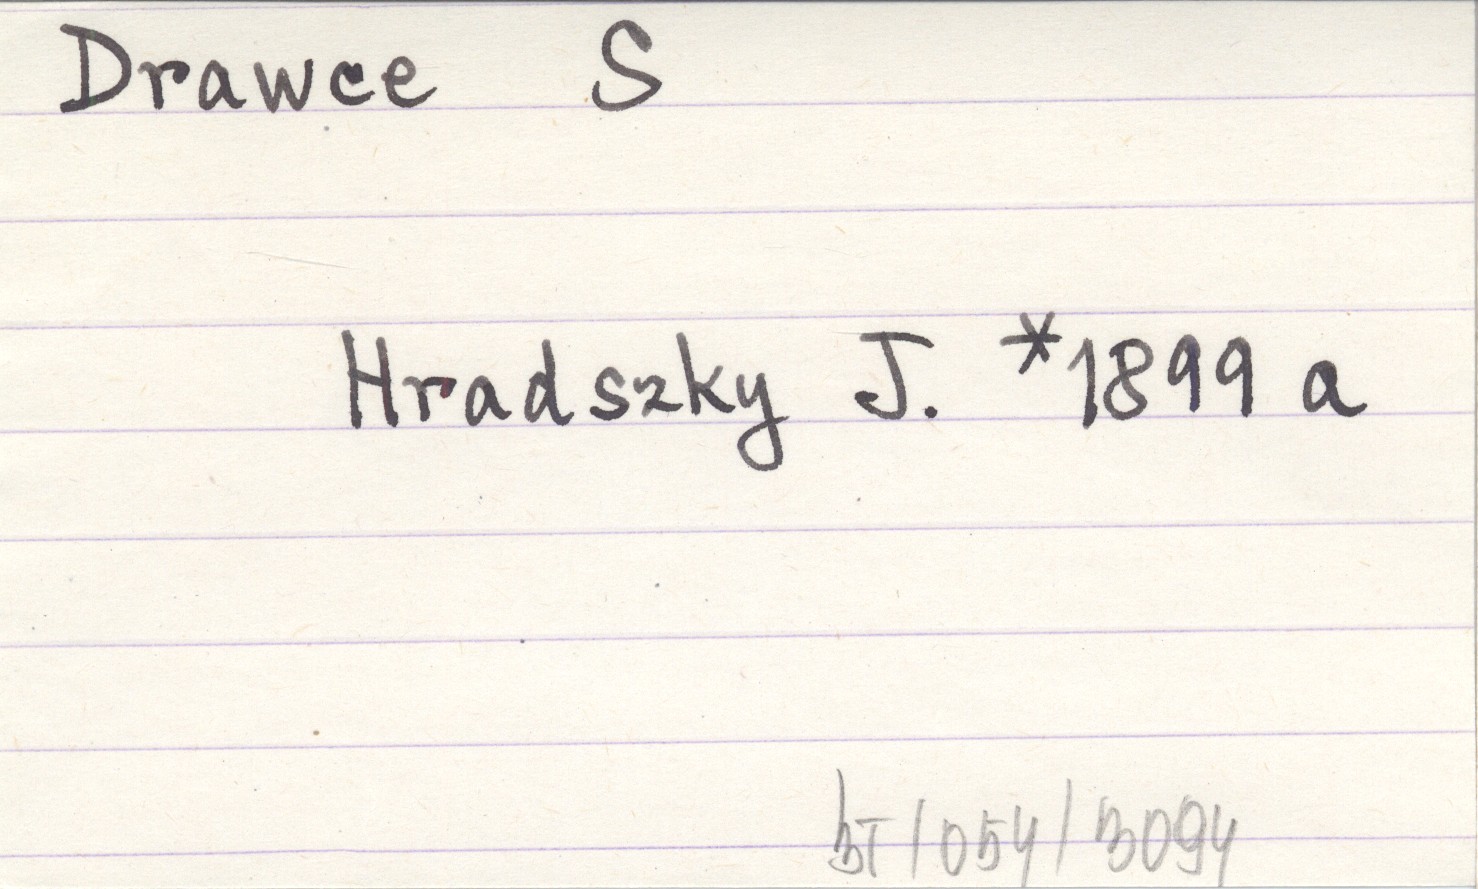 Drawce S
Hradszky J. *1899 a
bT/054/3094